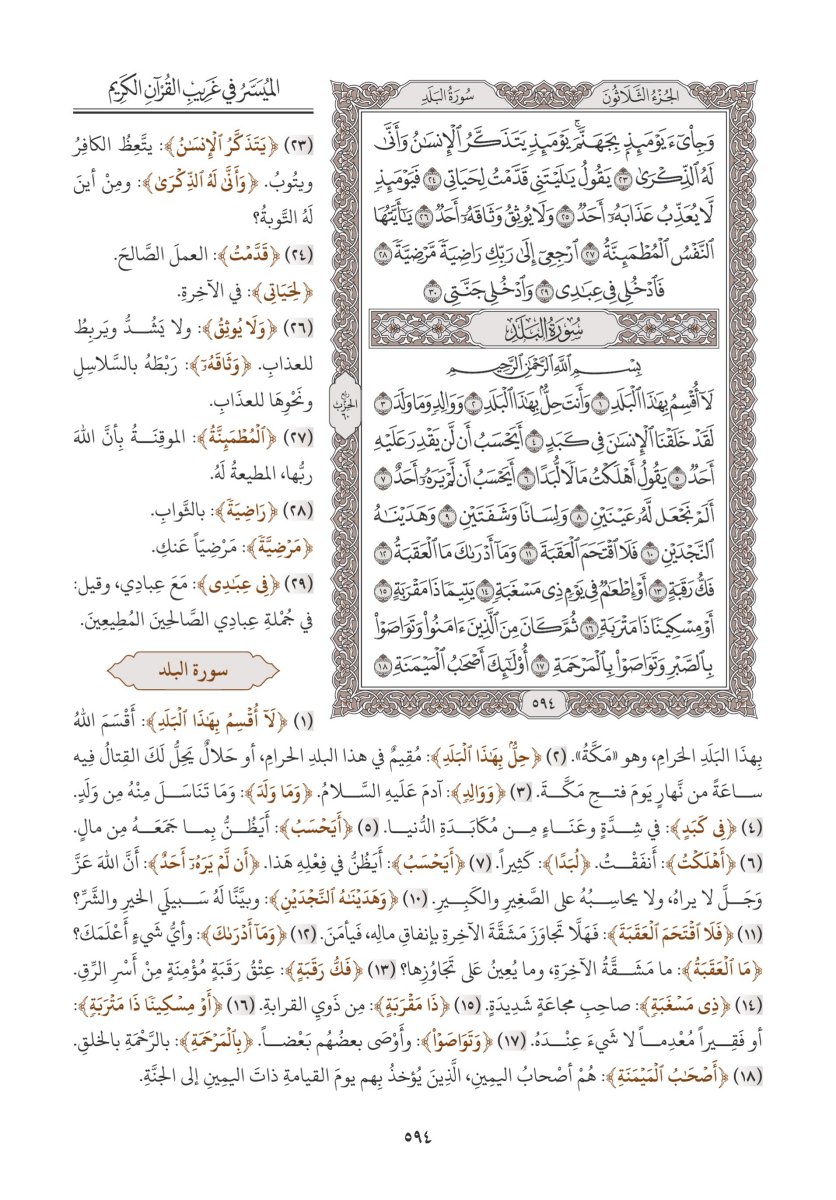 الميَسَّرُ في غَرِيبِ القُرْآنِ الكَرِيم
الجُزْءُ الثَّلَاثُونَ
سُورَةُ البَلَدِ
وَجِاْيٓءَ يَوْمَئِذِۭ بِجَهَنَّمَۚ يَوْمَئِذٖ يَتَذَكَّرُ ٱلۡإِنسَٰنُ وَأَنَّىٰ
لَهُ ٱلذِّكۡرَىٰ ٢٣ يَقُولُ يَٰلَيۡتَنِي قَدَّمۡتُ لِحَيَاتِي ٢٤ فَيَوۡمَئِذٖ
لَّا يُعَذِّبُ عَذَابَهُۥٓ أَحَدٞ ٢٥ وَلَا يُوثِقُ وَثَاقَهُۥٓ أَحَدٞ ٢٦ يَٰٓأَيَّتُهَا
ٱلنَّفۡسُ ٱلۡمُطۡمَئِنَّةُ ٢٧ ٱرۡجِعِيٓ إِلَىٰ رَبِّكِ رَاضِيَةٗ مَّرۡضِيَّةٗ ٢٨
فَٱدۡخُلِي فِي عِبَٰدِي ٢٩ وَٱدۡخُلِي جَنَّتِي ٣٠
سُورَةُ الْبَلَدِ
بِسۡمِ ٱللَّهِ ٱلرَّحۡمَٰنِ ٱلرَّحِيمِ
لَآ أُقۡسِمُ بِهَٰذَا ٱلۡبَلَدِ ١ وَأَنتَ حِلُّۢ بِهَٰذَا ٱلۡبَلَدِ ٢ وَوَالِدٖ وَمَا وَلَدَ ٣
لَقَدۡ خَلَقۡنَا ٱلۡإِنسَٰنَ فِي كَبَدٍ ٤ أَيَحۡسَبُ أَن لَّن يَقۡدِرَ عَلَيۡهِ
أَحَدٞ ٥ يَقُولُ أَهۡلَكۡتُ مَالٗا لُّبَدًا ٦ أَيَحۡسَبُ أَن لَّمۡ يَرَهُۥٓ أَحَدٌ ٧
أَلَمۡ نَجۡعَل لَّهُۥ عَيۡنَيۡنِ ٨ وَلِسَانٗا وَشَفَتَيۡنِ ٩ وَهَدَيۡنَٰهُ
ٱلنَّجۡدَيۡنِ ١٠ فَلَا ٱقۡتَحَمَ ٱلۡعَقَبَةَ ١١ وَمَآ أَدۡرَىٰكَ مَا ٱلۡعَقَبَةُ ١٢
فَكُّ رَقَبَةٍ ١٣ أَوۡ إِطۡعَٰمٞ فِي يَوۡمٖ ذِي مَسۡغَبَةٖ ١٤ يَتِيمٗا ذَا مَقۡرَبَةٍ ١٥
أَوۡ مِسۡكِينٗا ذَا مَتۡرَبَةٖ ١٦ ثُمَّ كَانَ مِنَ ٱلَّذِينَ ءَامَنُواْ وَتَوَاصَوۡاْ
بِٱلصَّبۡرِ وَتَوَاصَوۡاْ بِٱلۡمَرۡحَمَةِ ١٧ أُوْلَٰٓئِكَ أَصۡحَٰبُ ٱلۡمَيۡمَنَةِ ١٨
ربع
الحزب
٦٠
٥٩٤
(٢٣) ﴿يَتَذَكَّرُ ٱلۡإِنسَٰنُ﴾: يتَّعِظُ الكافِرُ
ويتُوبُ. ﴿وَأَنَّىٰ لَهُ ٱلذِّكۡرَىٰ﴾: ومِنْ أينَ
لَهُ التَّوبةُ؟
(٢٤) ﴿قَدَّمۡتُ﴾: العملَ الصَّالحَ.
﴿لِحَيَاتِي﴾: في الآخِرةِ.
(٢٦) ﴿وَلَا يُوثِقُ﴾: ولا يَشُدُّ ويَربِطُ
للعذابِ. ﴿وَثَاقَهُۥٓ﴾: رَبْطَهُ بالسَّلاسِلِ
ونَحْوِها للعذَابِ.
(٢٧) ﴿ٱلۡمُطۡمَئِنَّةُ﴾: الموقِنَةُ بأنَّ اللهَ
ربُّها، المطيعةُ لَهُ.
(٢٨) ﴿رَاضِيَةٗ﴾: بالثَّوابِ.
﴿مَرۡضِيَّةٗ﴾: مَرْضِيّاً عَنكِ.
(٢٩) ﴿فِي عِبَٰدِي﴾: مَعَ عِبادِي، وقيل:
في جُمْلةِ عِبادِي الصَّالحينَ المُطِيعِينَ.
سورة البلد
(١) ﴿لَآ أُقۡسِمُ بِهَٰذَا ٱلۡبَلَدِ﴾: أَقْسَمَ اللهُ
بِهذَا البَلَدِ الحَرامِ، وهو «مَكَّةُ». (٢) ﴿حِلُّۢ بِهَٰذَا ٱلۡبَلَدِ﴾: مُقِيمٌ في هذا البلدِ الحرامِ، أو حَلالٌ يَحِلُّ لَكَ القِتالُ فِيه
ساعَةً من نَّهارٍ يَومَ فتحِ مَكَّةَ. (٣) ﴿وَوَالِدٖ﴾: آدمَ عَلَيهِ السَّلامُ. ﴿وَمَا وَلَدَ﴾: وَمَا تَنَاسَلَ مِنْهُ مِن وَلَدٍ.
(٤) ﴿فِي كَبَدٍ﴾: في شِدَّةٍ وعَنَاءٍ مِن مُكَابَدَةِ الدُّنيا. (٥) ﴿أَيَحۡسَبُ﴾: أَيَظُنُّ بِما جَمَعَهُ مِن مالٍ.
(٦) ﴿أَهۡلَكۡتُ﴾: أَنفَقْتُ. ﴿لُبَدًا﴾: كَثِيراً. (٧) ﴿أَيَحۡسَبُ﴾: أَيَظُنُّ في فِعْلِهِ هَذا. ﴿أَن لَّمۡ يَرَهُۥٓ أَحَدٌ﴾: أَنَّ اللهَ عَزَّ
وَجَلَّ لا يراهُ، ولا يحاسِبُهُ على الصَّغِيرِ والكَبِيرِ. (١٠) ﴿وَهَدَيۡنَٰهُ ٱلنَّجۡدَيۡنِ﴾: وبيَّنَّا لَهُ سَبِيلَيِ الخيرِ والشَّرِّ؟
(١١) ﴿فَلَا ٱقۡتَحَمَ ٱلۡعَقَبَةَ﴾: فهَلَّا تَجَاوَزَ مَشَقَّةَ الآخِرةِ بإنفاقِ مالِهِ، فيأمَنَ. (١٢) ﴿وَمَآ أَدۡرَىٰكَ﴾: وأيُّ شَيءٍ أَعْلَمَكَ؟
﴿مَا ٱلۡعَقَبَةُ﴾: ما مَشَقَّةُ الآخِرَةِ، وما يُعِينُ عَلى تَجَاوُزِها؟ (١٣) ﴿فَكُّ رَقَبَةٍ﴾: عِتْقُ رَقَبَةٍ مُؤْمِنَةٍ مِنْ أَسْرِ الرِّقِ.
(١٤) ﴿ذِي مَسۡغَبَةٖ﴾: صاحِبِ مجاعَةٍ شَدِيدَةٍ. (١٥) ﴿ذَا مَقۡرَبَةٍ﴾: مِن ذَوِي القرابةِ. (١٦) ﴿أَوۡ مِسۡكِينٗا ذَا مَتۡرَبَةٖ﴾:
أو فَقِيراً مُعْدِماً لا شَيءَ عِنْدَهُ. (١٧) ﴿وَتَوَاصَوۡاْ﴾: وأَوْصَى بعضُهُم بَعْضاً. ﴿بِٱلۡمَرۡحَمَةِ﴾: بالرَّحْمَةِ بالخلقِ.
(١٨) ﴿أَصۡحَٰبُ ٱلۡمَيۡمَنَةِ﴾: هُمْ أصْحابُ اليمِينِ، الَّذِينَ يُؤخذُ بِهم يومَ القيامةِ ذاتَ اليمينِ إلى الجنَّةِ.
٥٩٤